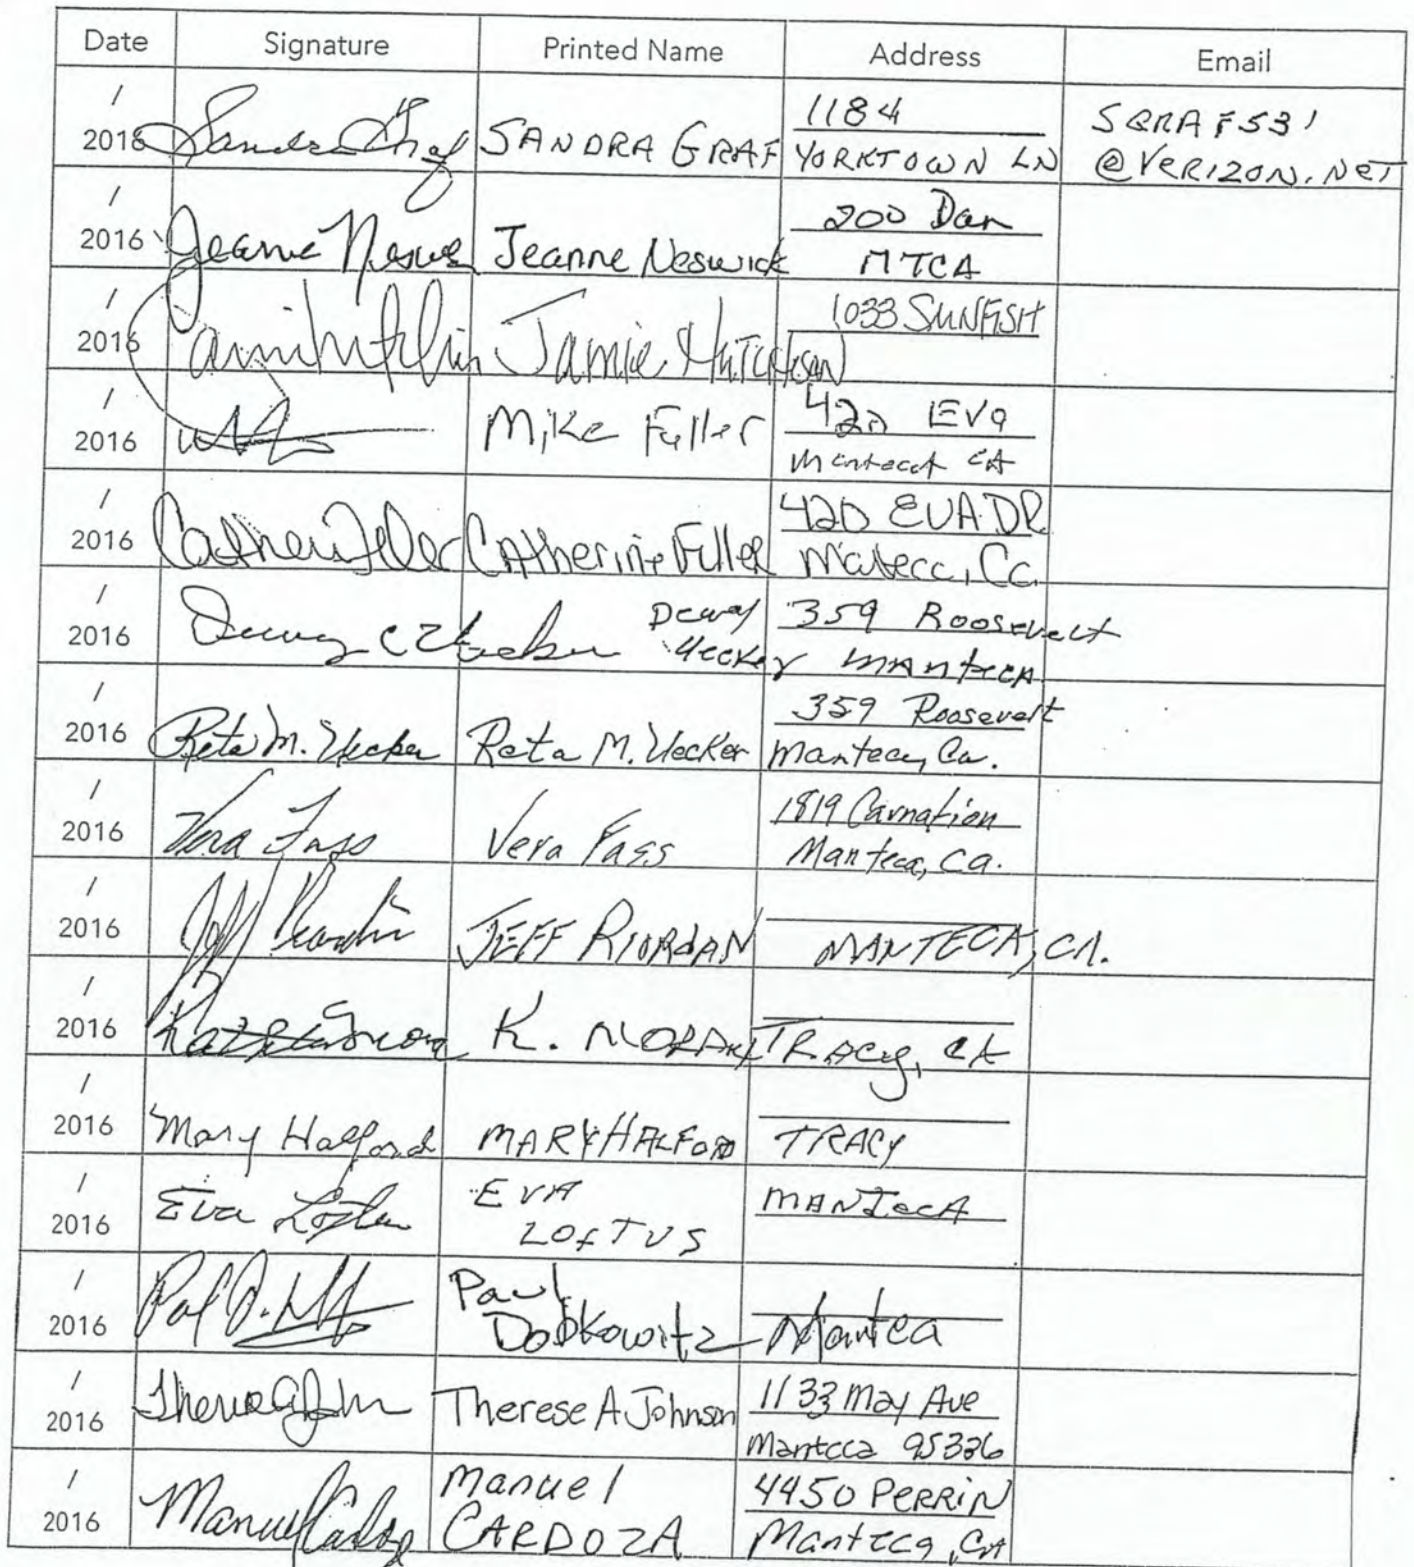 Date Signature Printed Name Address Email
/
2016 Sandra Graf SANDRA GRAF 1184 YORKTOWN LN SGRAF531 @VERIZON.NET
/
2016 Jeanne Neswick Jeanne Neswick 200 Dan MTCA
/
2016 Jamie Hutchison 1033 SUNFISH
/
2016 Mike Fuller 420 EVA Manteca CA
/
2016 Catherine Fuller CAtherine Fuller 420 EVA DR Manteca, Ca.
/
2016 Dewey C Uecker Dewey Uecker 359 Roosevelt MANtecA
/
2016 Reta M. Uecker Reta M. Uecker 359 Roosevelt Manteca, Ca.
/
2016 Vera Fass Vera Fass 1819 Carnation Manteca, Ca.
/
2016 Jeff Riordan JEFF RIORDAN MANTECA, CA.
/
2016 K. MORAN TRACY, CA
/
2016 Mary Halford MARY HALFORD TRACY
/
2016 Eva Loftus EVA LOFTUS MANTecA
/
2016 Paul Dobkowitz Manteca
/
2016 Therese A Johnson 1133 May Ave Manteca 95336
/
2016 Manuel Cardoza Manuel CARDOZA 4450 PERRIN Manteca, CA